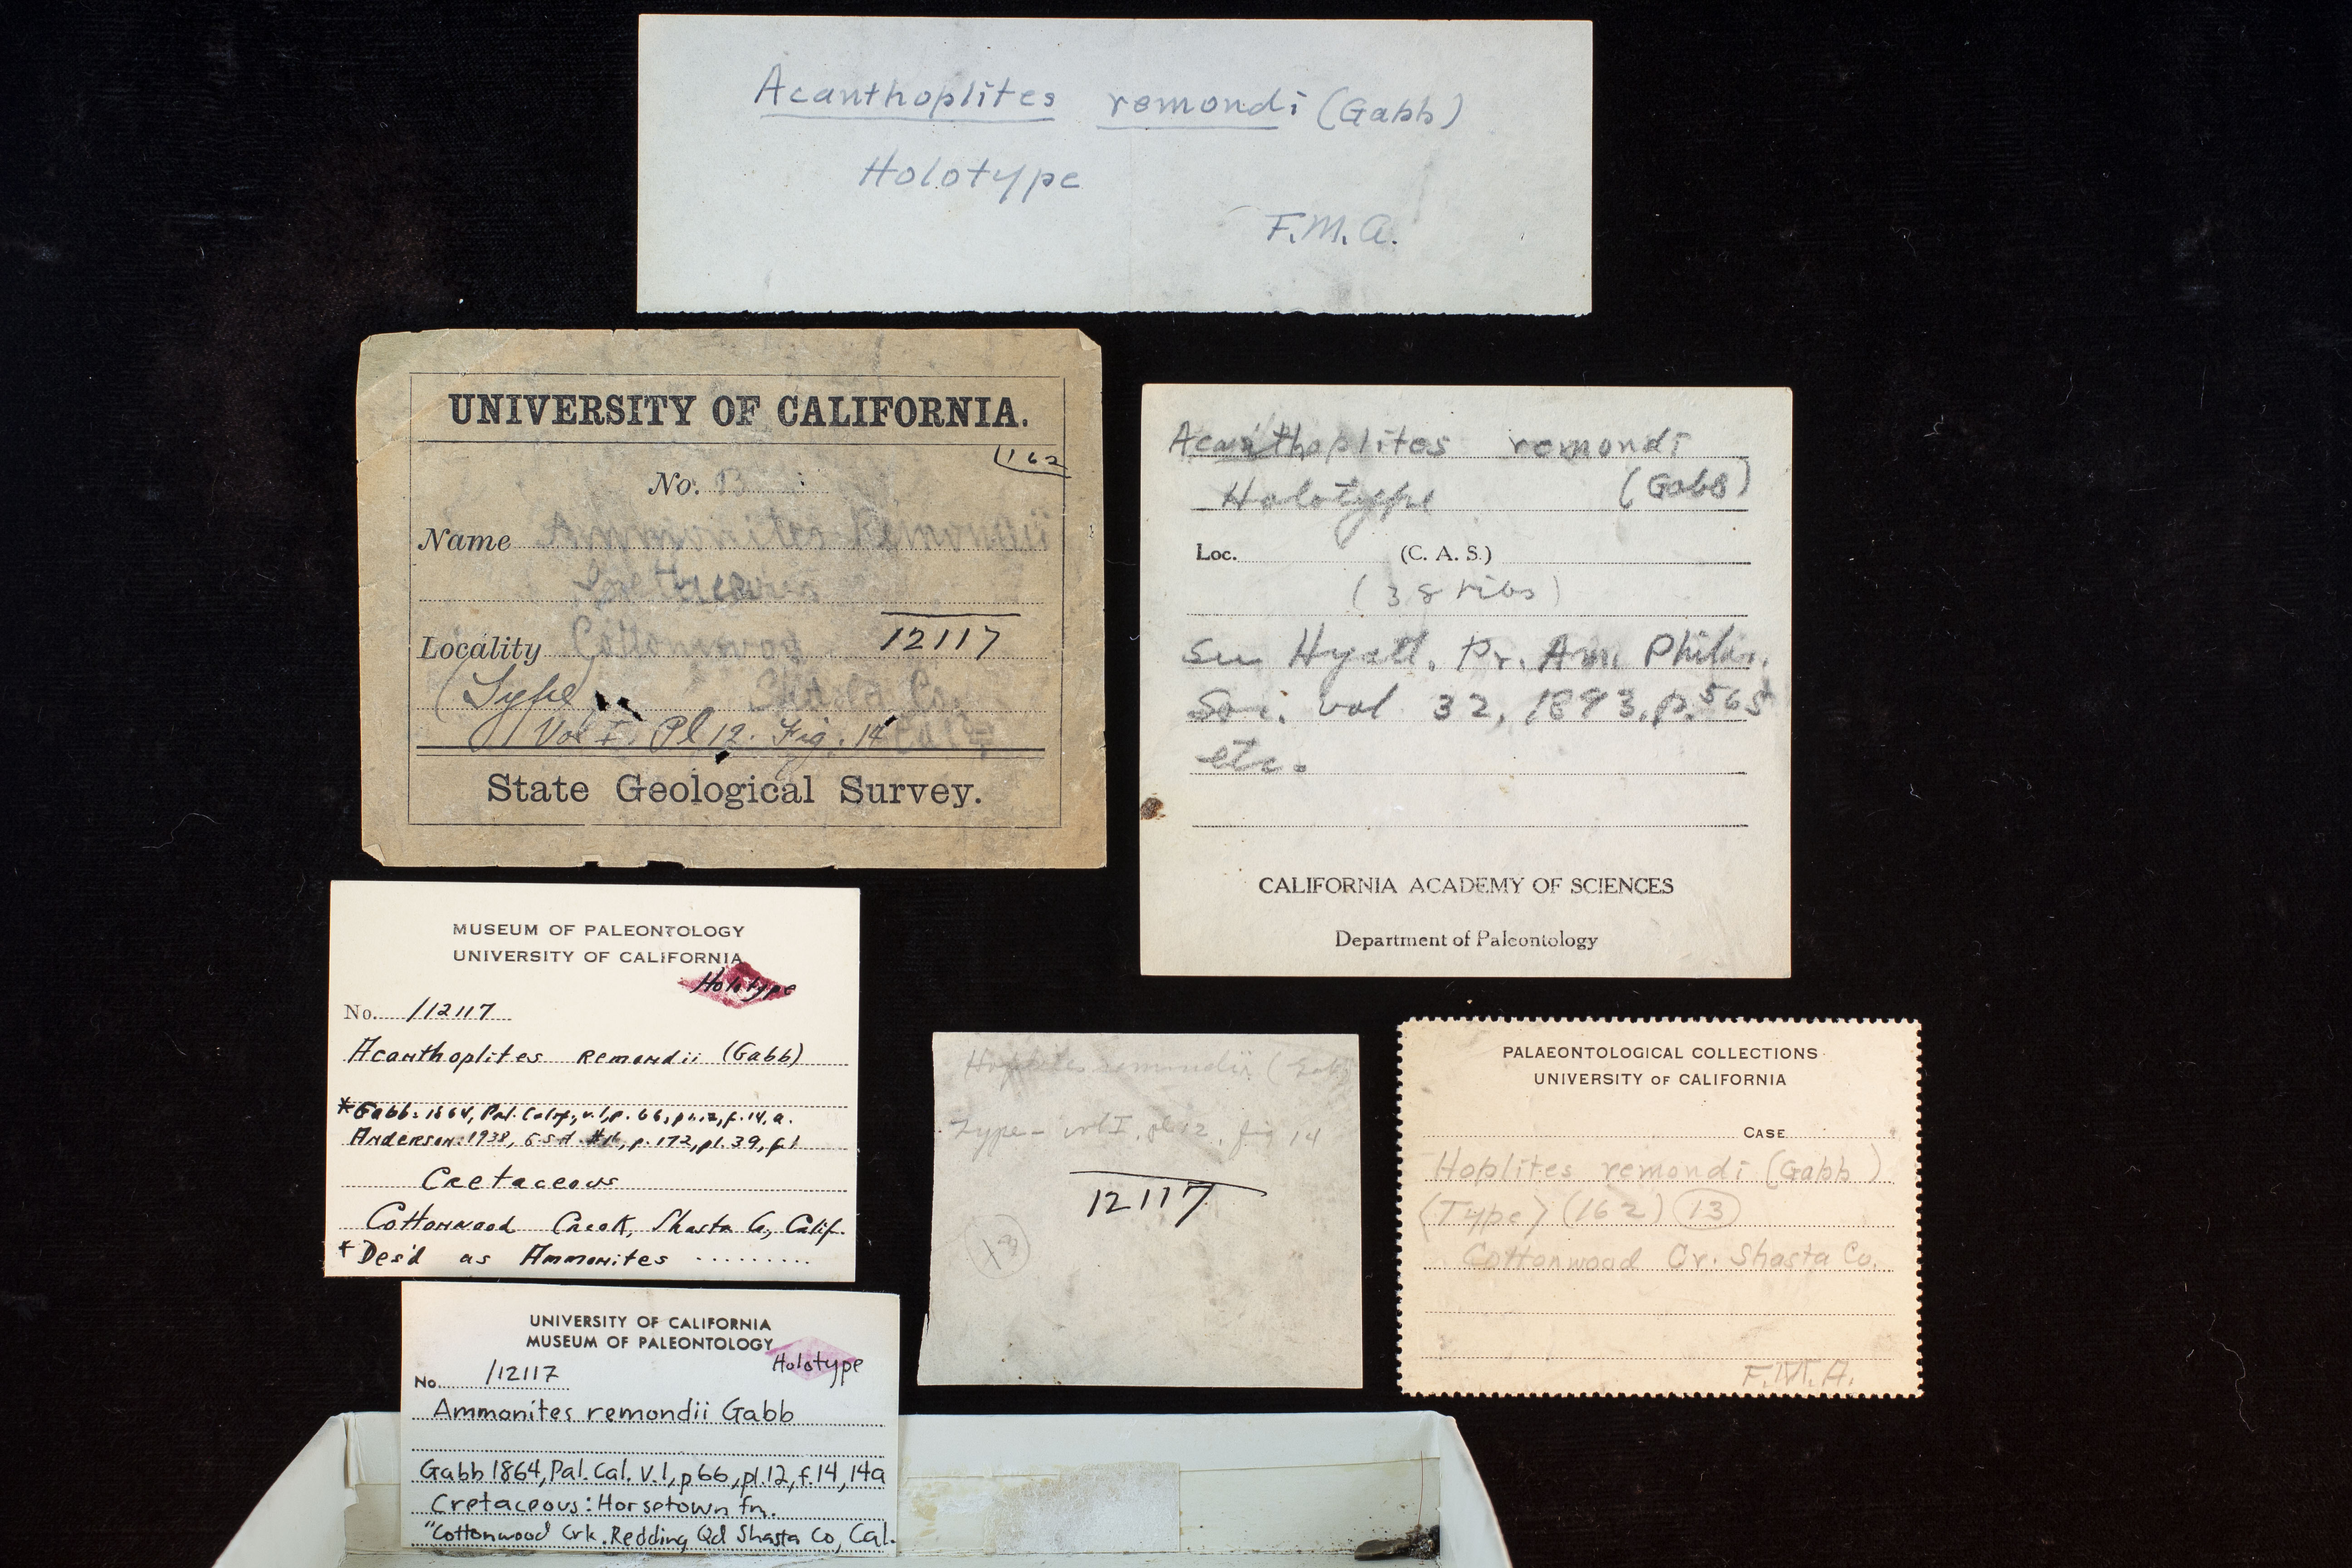 Acanthoplites remondi (Gabb)
Holotype
F.M.A.
UNIVERSITY OF CALIFORNIA.
(162
No. 13
Name Ammonites Remondii
Locality Cottonwood 12117
(Type) Shasta Co.
Vol I. Pl 12. Fig. 14 Cal
State Geological Survey.
Acanthoplites remondi
Holotype (Gabb)
Loc. (C. A. S.)
(38 ribs)
See Hyatt, Pr. Am. Philos.
Soc. vol 32, 1893, p. 568
etc.
CALIFORNIA ACADEMY OF SCIENCES
Department of Paleontology
MUSEUM OF PALEONTOLOGY
UNIVERSITY OF CALIFORNIA
Holotype
No. /12117
Acanthoplites remondii (Gabb)
*Gabb: 1864, Pal. Calif., v.1, p. 66, pl.12, f.14, a.
Anderson: 1938, G.S.A. #16, p. 172, pl. 39, f.1
Cretaceous
Cottonwood Creek, Shasta Co, Calif.
* Des'd as Ammonites .........
Hoplites remondii (Gabb
Type - vol I, pl 12, fig 14
12117
13
PALAEONTOLOGICAL COLLECTIONS
UNIVERSITY OF CALIFORNIA
CASE
Hoplites remondi (Gabb)
(Type) (162) 13
Cottonwood Cr. Shasta Co.
F.M.A.
UNIVERSITY OF CALIFORNIA
MUSEUM OF PALEONTOLOGY
Holotype
No. /12117
Ammonites remondii Gabb
Gabb 1864, Pal. Cal. v.1, p66, pl.12, f.14, 14a
Cretaceous: Horsetown fn.
"Cottonwood Crk. Redding Qd Shasta Co, Cal.